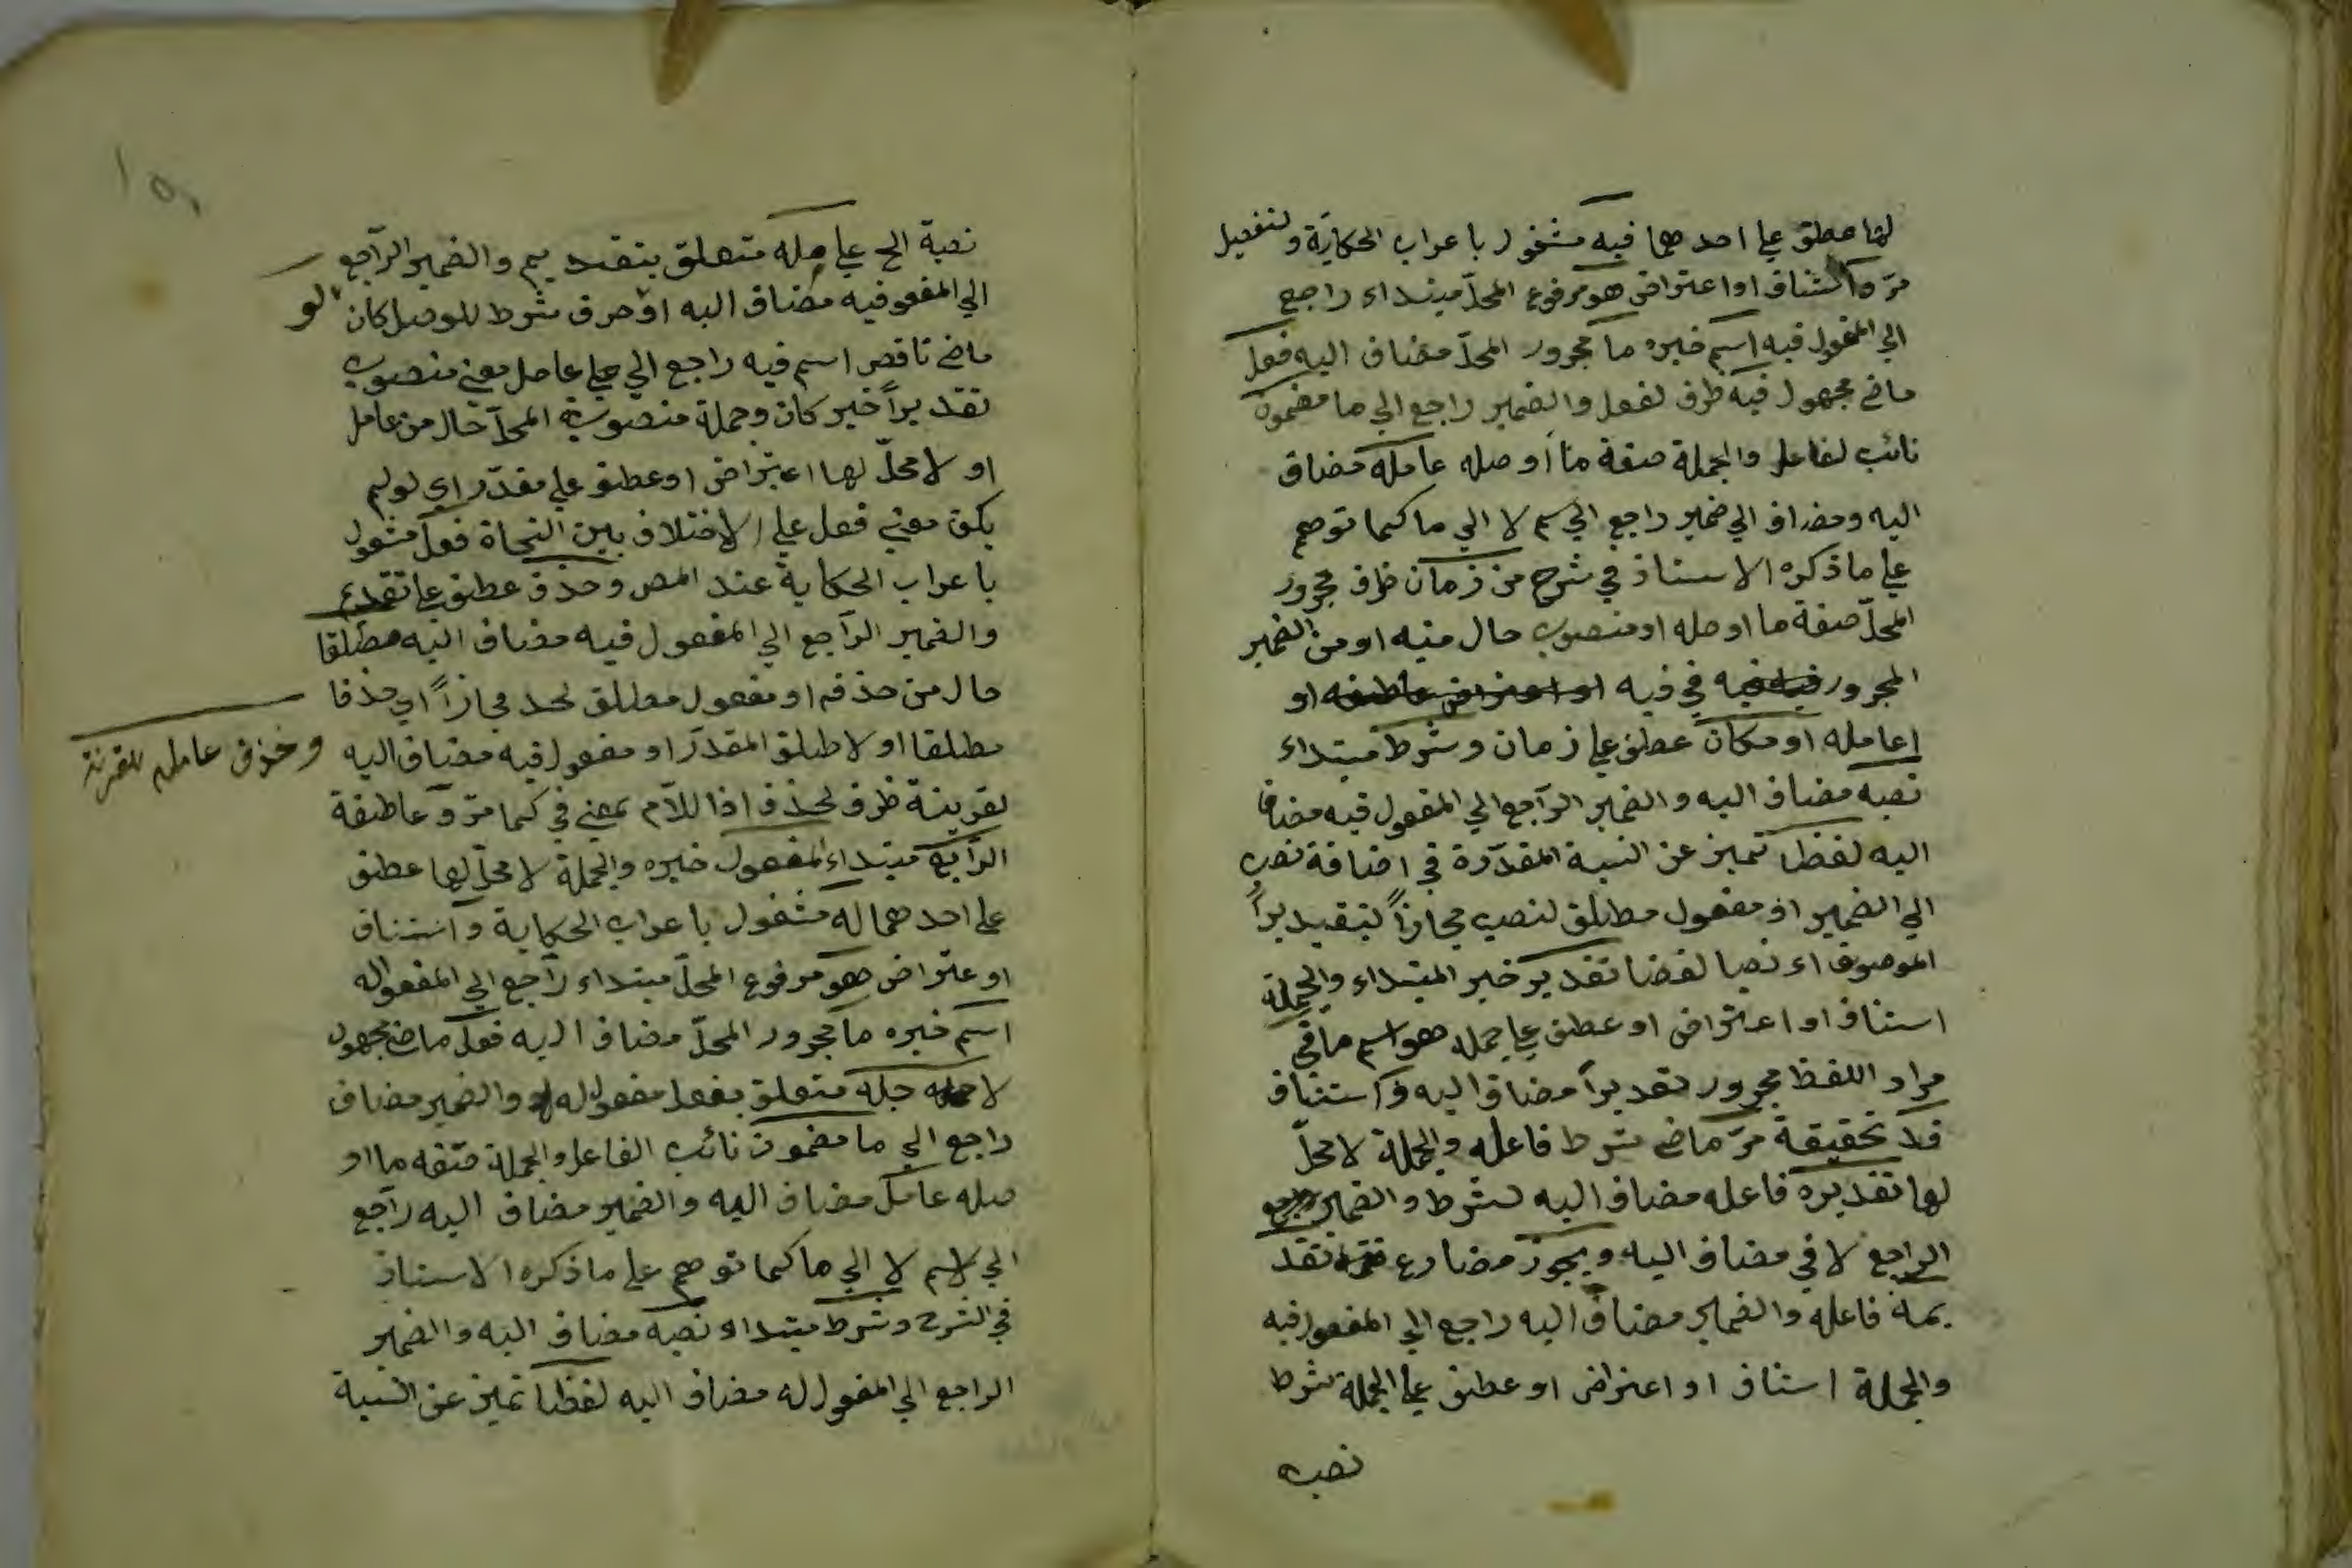 لها عطف على احدهما فيه مشغول باعراب الحكاية ولتفصيل
مرّ واستناف او اعتراض هو مرفوع المحلّ مبتداء راجع
الي المفعول فيه اسم خبره ما مجرور المحلّ مضاف اليه فعل
ماضي مجهول فيه ظرف لفعل والضمير راجع الي ما مضمون
نائب لفاعل والجملة صفة ما أو صله عامله مضاف
اليه ومضاف الي ضمير راجع الي اسم لا الي ما كما توهم
علي ما ذكره الاستاذ في شرح من زمان ظرف مجرور
المحلّ صفة ما او صله او منصوب حال منه او من الضمير
المجرور في فيه او
عامله او مكان عطف علي زمان وشرط مبتداء
نصبه مضاف اليه والضمير الرّاجع الي المفعول فيه مضاف
اليه لفظا تميز عن النسبة المقدّرة في اضافة نصب
الي الضمير او مفعول مطلق لنصب مجازاً لتقديراً
الموصوف اء نصبا لفضا تقدير خبر المبتداء والجملة
استناف او اعتراض او عطف علي جمله هو اسم ما في
مراد اللفظ مجرور تقديراً مضاف اليه و استناف
قد تحقيقة مرّ ماضي شرط فاعله والجملة لا محلّ
لها تقديره فاعله مضاف اليه لشرط والضمير
الراجع لا في مضاف اليه ويجوز مضارع تقد
يمه فاعله والضمير مضاف اليه راجع الي المفعول فيه
والجملة استناف او اعتراض او عطف علي الجملة شرط
نصبه
نصبة الخ علي عامله متعلق بتقديم والضمير الرّاجع
الي المفعو فيه مضاف اليه او حرف شرط للوصل كان لو
ماضي ناقص اسم فيه راجع الي علي عامل معني منصوب
تقديراً خبر كان وجملة منصوبة المحلّ حال من عامل
او لا محلّ لها اعتراض او عطف علي مقدّر اي لو لم
يكن معني فعل علي الاختلاف بين النحاة فعل مشغول
باعراب الحكاية عند المص وحذف عطف علي تقديم
والضمير الرّاجع الي المفعول فيه مضاف اليه مطلقا
حال من حذفه او مفعول مطلق لحذ مجازاً اي حذفا
مطلقا او لاطلق المقدّر او مفعول فيه مضاف اليه
وحذف عامله لقرينة
لقرينة ظرف لحذف اذا اللاّم بمعني في كما مرّ و عاطفة
الرّابع مبتداء المفعول خبره والجملة لا محلّ لها عطف
علي احدهما له مشغول باعراب الحكاية و استناف
او عتراض هو مرفوع المحلّ مبتداء راجع الي المفعوله
اسم خبره ما مجرور المحلّ مضاف اليه فعل ماضي مجهول
لاجله متعلق بفعل مفعول له والضمير مضاف
راجع الي ما مضمون نائب الفاعل والجملة صفه ما او
صله عامل مضاف اليه والضمير مضاف اليه راجع
الي لاسم لا الي ما كما توهم علي ما ذكره الاستاذ
في الشرح وشرط مبتداء نصبه مضاف اليه والضمير
الراجع الي المفعول له مضاف اليه لفظا تميز عن النسبة